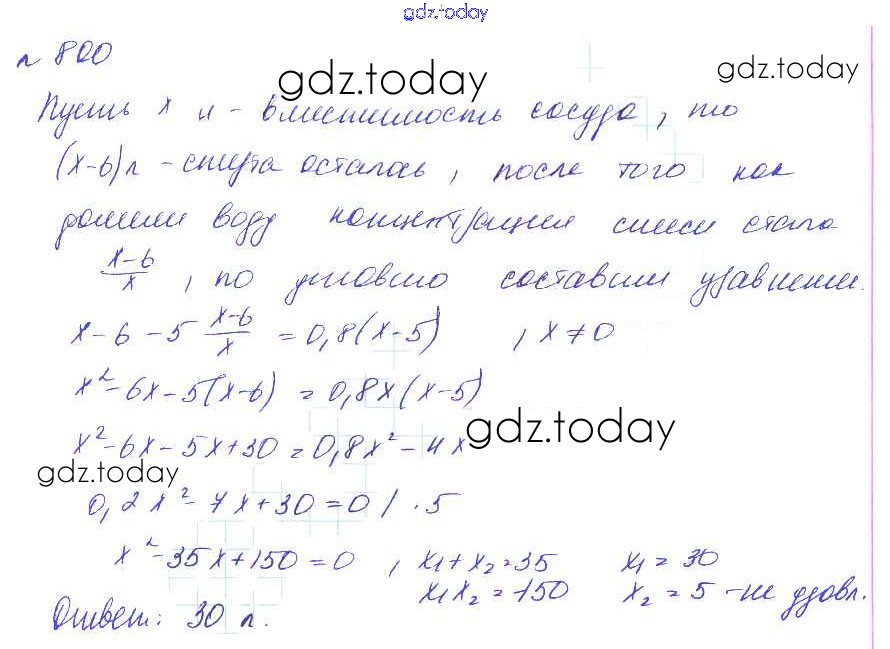 gdz.today
№ 800
gdz.today
gdz.today
Пусть x л - вместимость сосуда, то
(x-6) л - спирта осталось, после того как
долили воду концентрация смеси стала
x-6/x, по условию составим уравнение.
x-6-5 x-6/x = 0,8(x-5), x≠0
x²-6x-5(x-6) = 0,8x(x-5)
x²-6x-5x+30=0,8x²-4x
gdz.today
gdz.today
0,2x²-7x+30=0 / ·5
x²-35x+150=0, x₁+x₂=35 x₁=30
x₁x₂=150 x₂=5 - не удовл.
Ответ: 30 л.